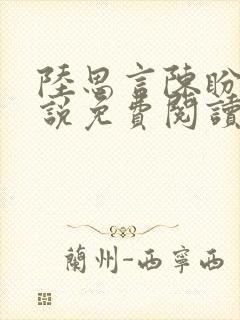 陸思言陳盼
說免費閱讀
蘭州-西寧西